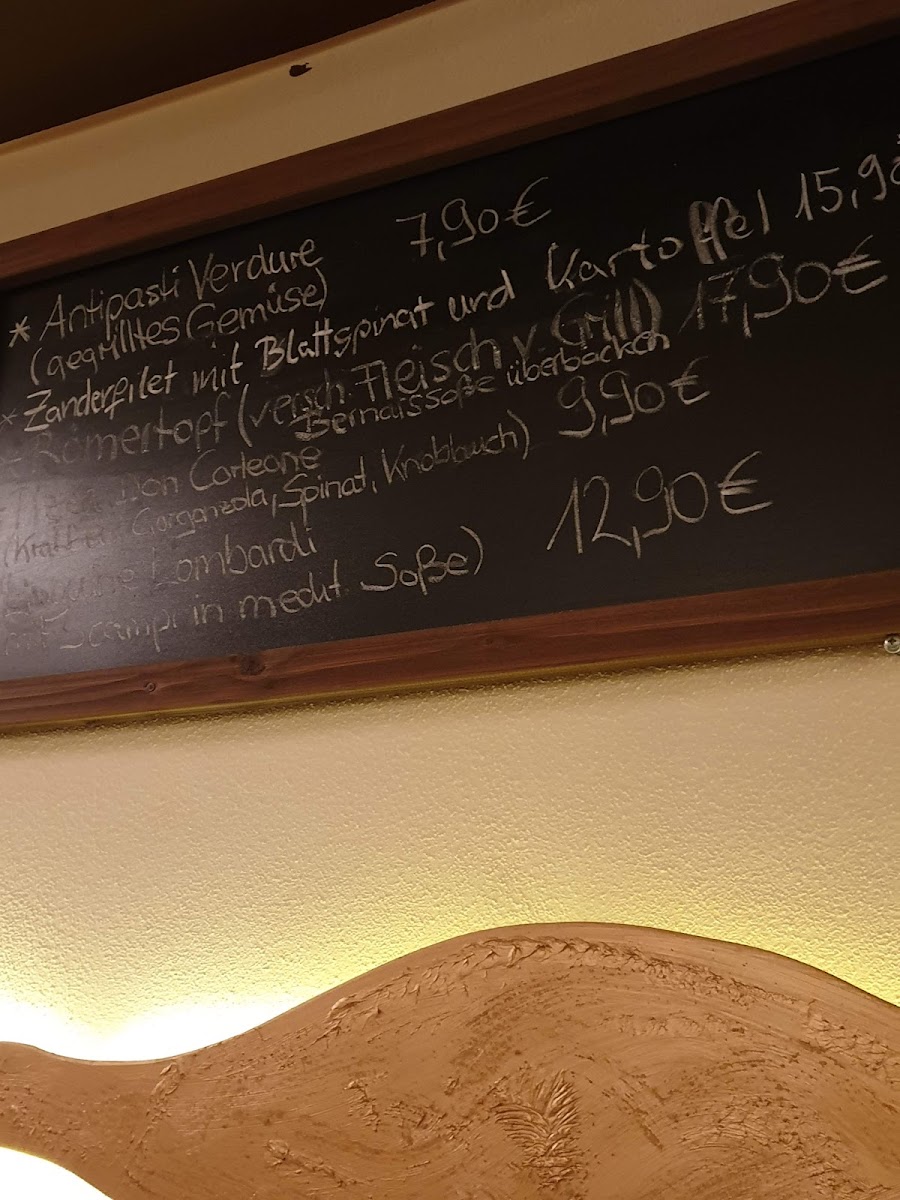 * Antipasti Verdure 7,90€
(gegrilltes Gemüse)
* Zanderfilet mit Blattspinat und Kartoffel 15,90
Römertopf (versch. Fleisch v. Grill) 17,90€
Bernaissoße überbacken
Don Corleone 9,90€
Gorgonzola, Spinat, Knoblauch)
Linguine Lombardi 12,90€
mit Scampi in medit. Soße)